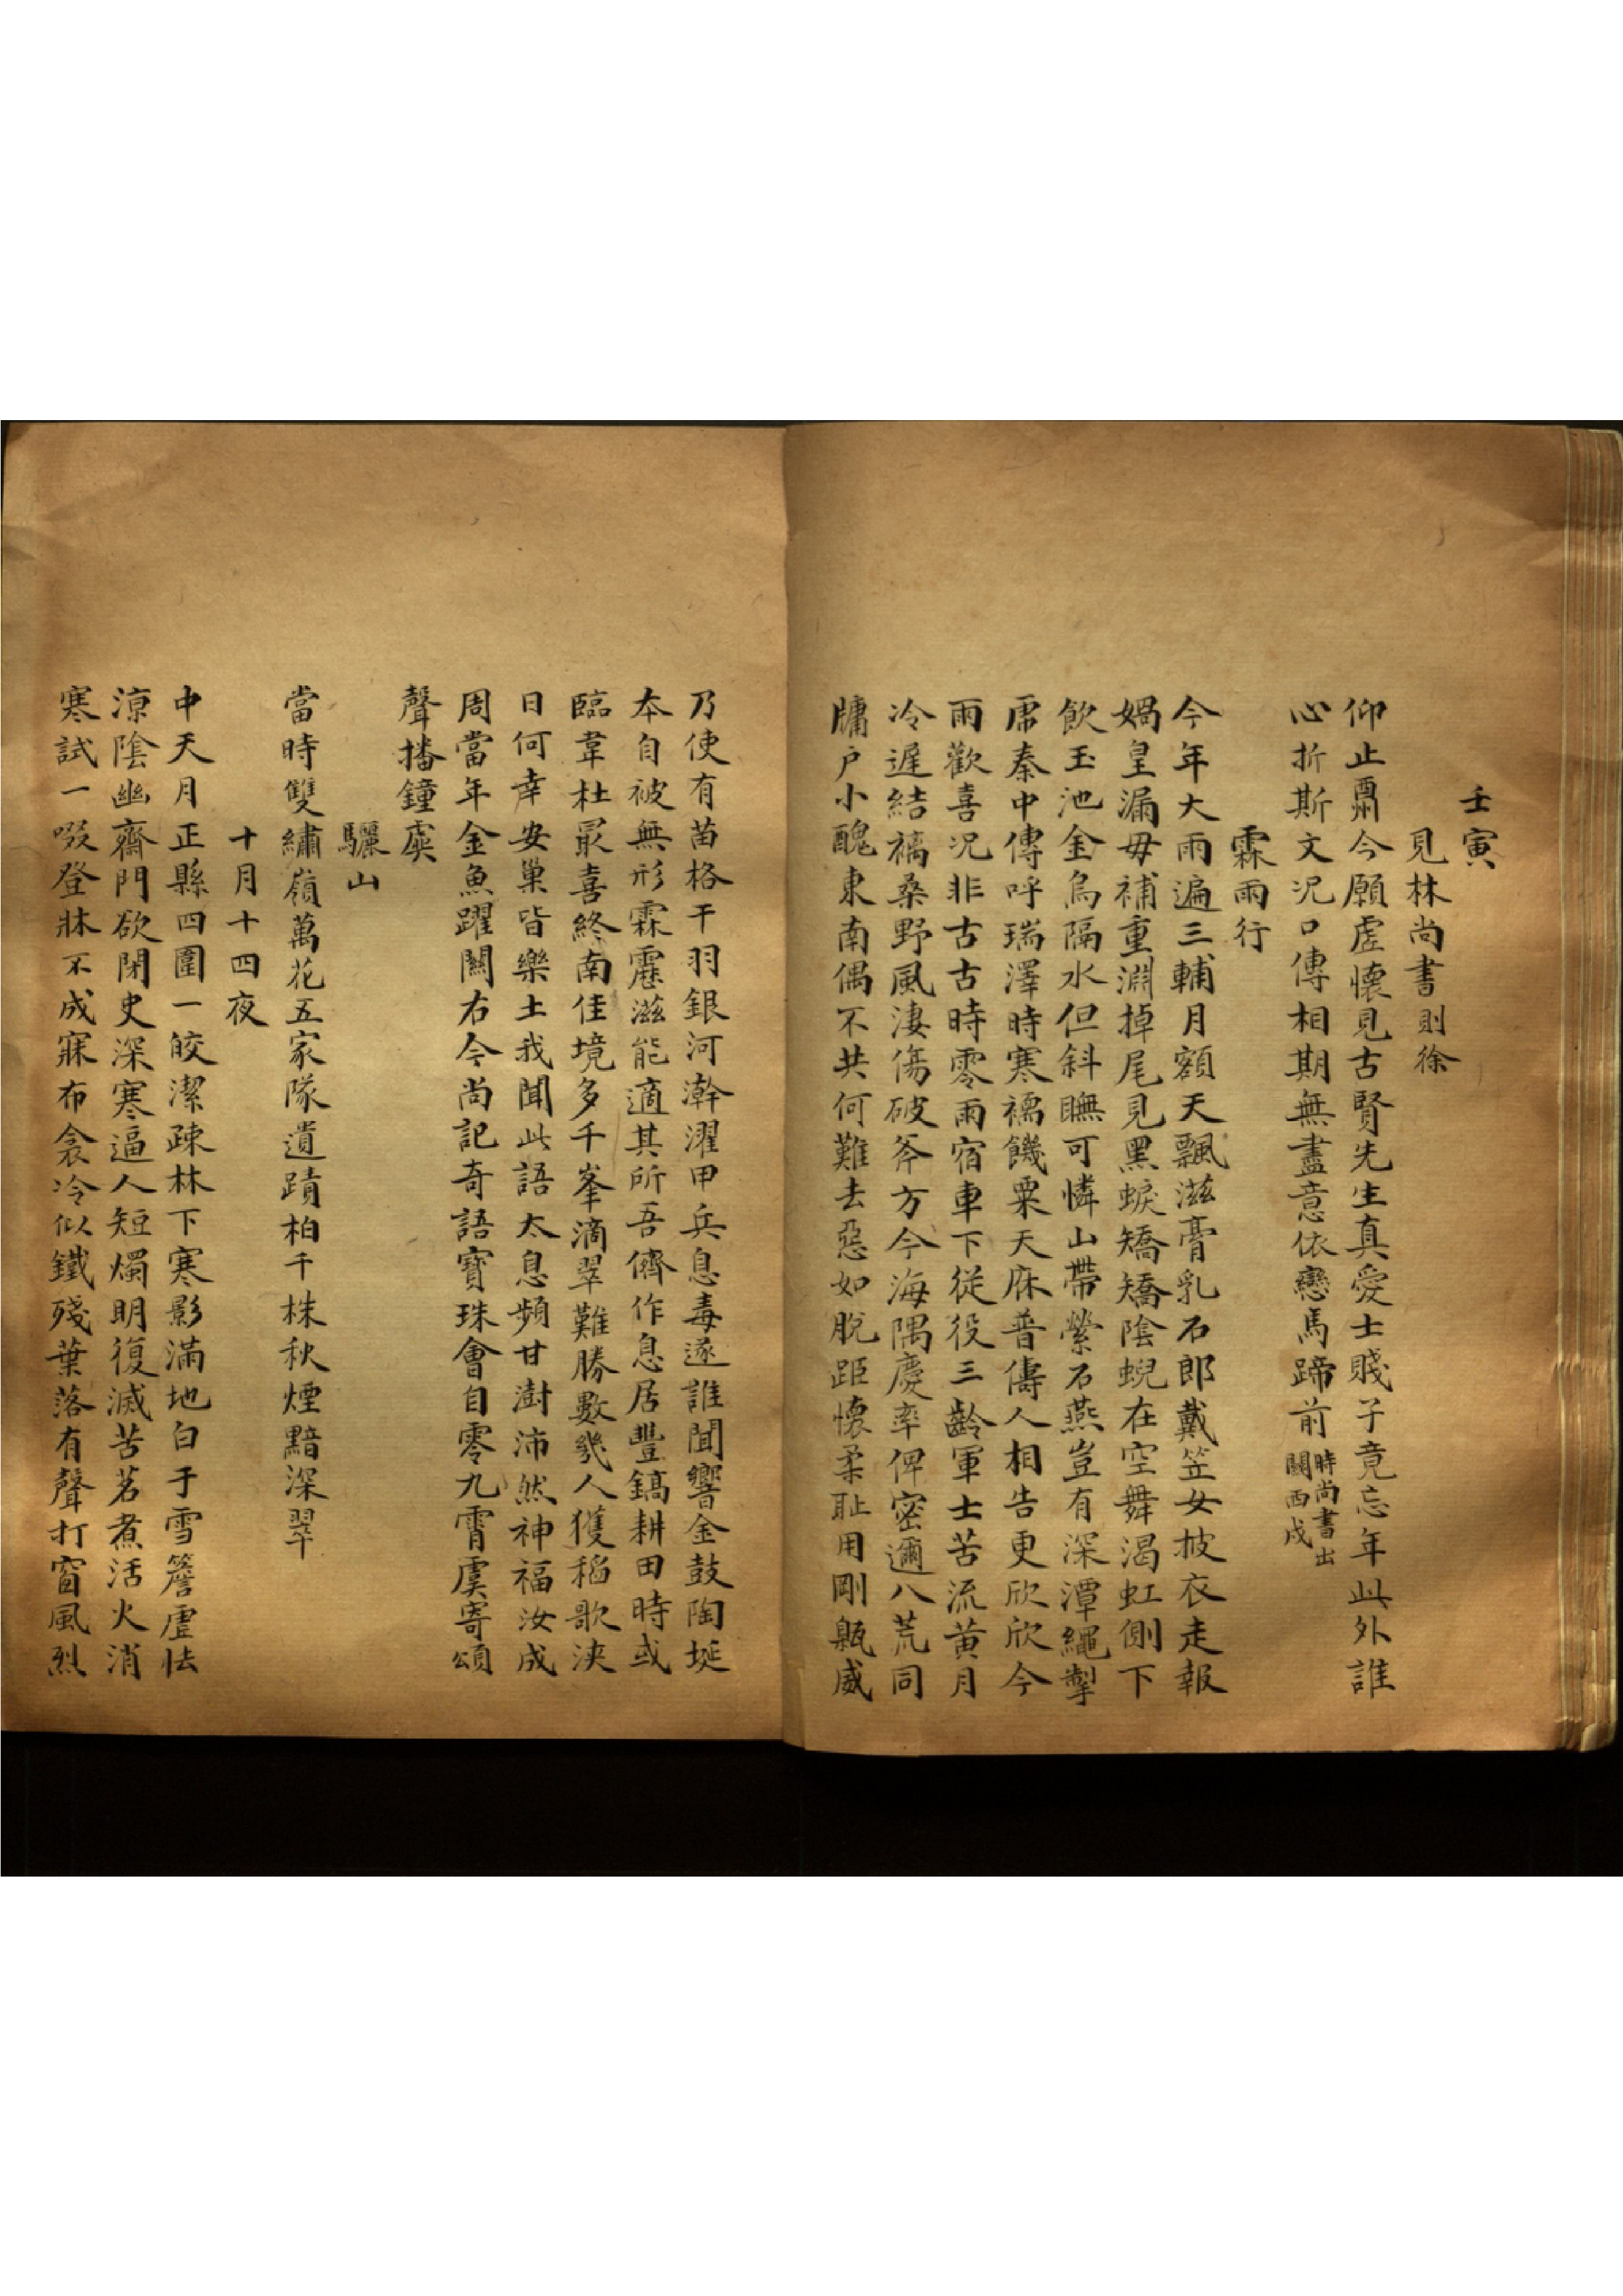 壬寅
見林尚書則徐
仰止鬻今願虛懷見古賢先生真愛士賤子竟忘年此外誰
心折斯文況口傳相期無盡意依戀馬蹄前時尚書出關西戍
霖雨行
今年大雨遍三輔月額天飄滋膏乳石郎戴笠女披衣走報
媧皇漏毋補重淵掉尾見黑蜧矯矯陰蜺在空舞渴虹側下
飲玉池金烏隔水但斜瞴可憐山帶縈石燕豈有深潭繩掣
虎秦中傳呼瑞澤時寒襦饑粟天庥普儔人相告更欣欣今
雨歡喜況非古古時零雨宿車下從役三齡軍士苦流黃月
冷遲結褵桑野風淒傷破斧方今海隅慶率俾密邇八荒同
牖戶小醜東南偶不共何難去惡如脫距懷柔耻用剛甄威
乃使有苗格干羽銀河澣濯甲兵息毒逐誰聞響金鼓陶埏
本自被無形霖靂滋能適其所吾儕作息居豐鎬耕田時或
臨韋杜最喜終南佳境多千峯滴翠難勝數幾人獲稻歌浹
日何幸安巢皆樂土我聞此語太息頻甘澍沛然神福汝成
周當年金魚躍關右今尚記奇語寶珠會自零九霄虞寄頌
聲播鐘虡
驪山
當時雙繡嶺萬花五家隊遺蹟柏千株秋煙黯深翠
十月十四夜
中天月正縣四圍一皎潔疎林下寒影滿地白于雪簷虛怯
涼陰幽齋門欲閉史深寒逼人短燭明復滅苦茗煮活火消
寒試一啜登牀不成寐布衾冷似鐵殘葉落有聲打窗風烈